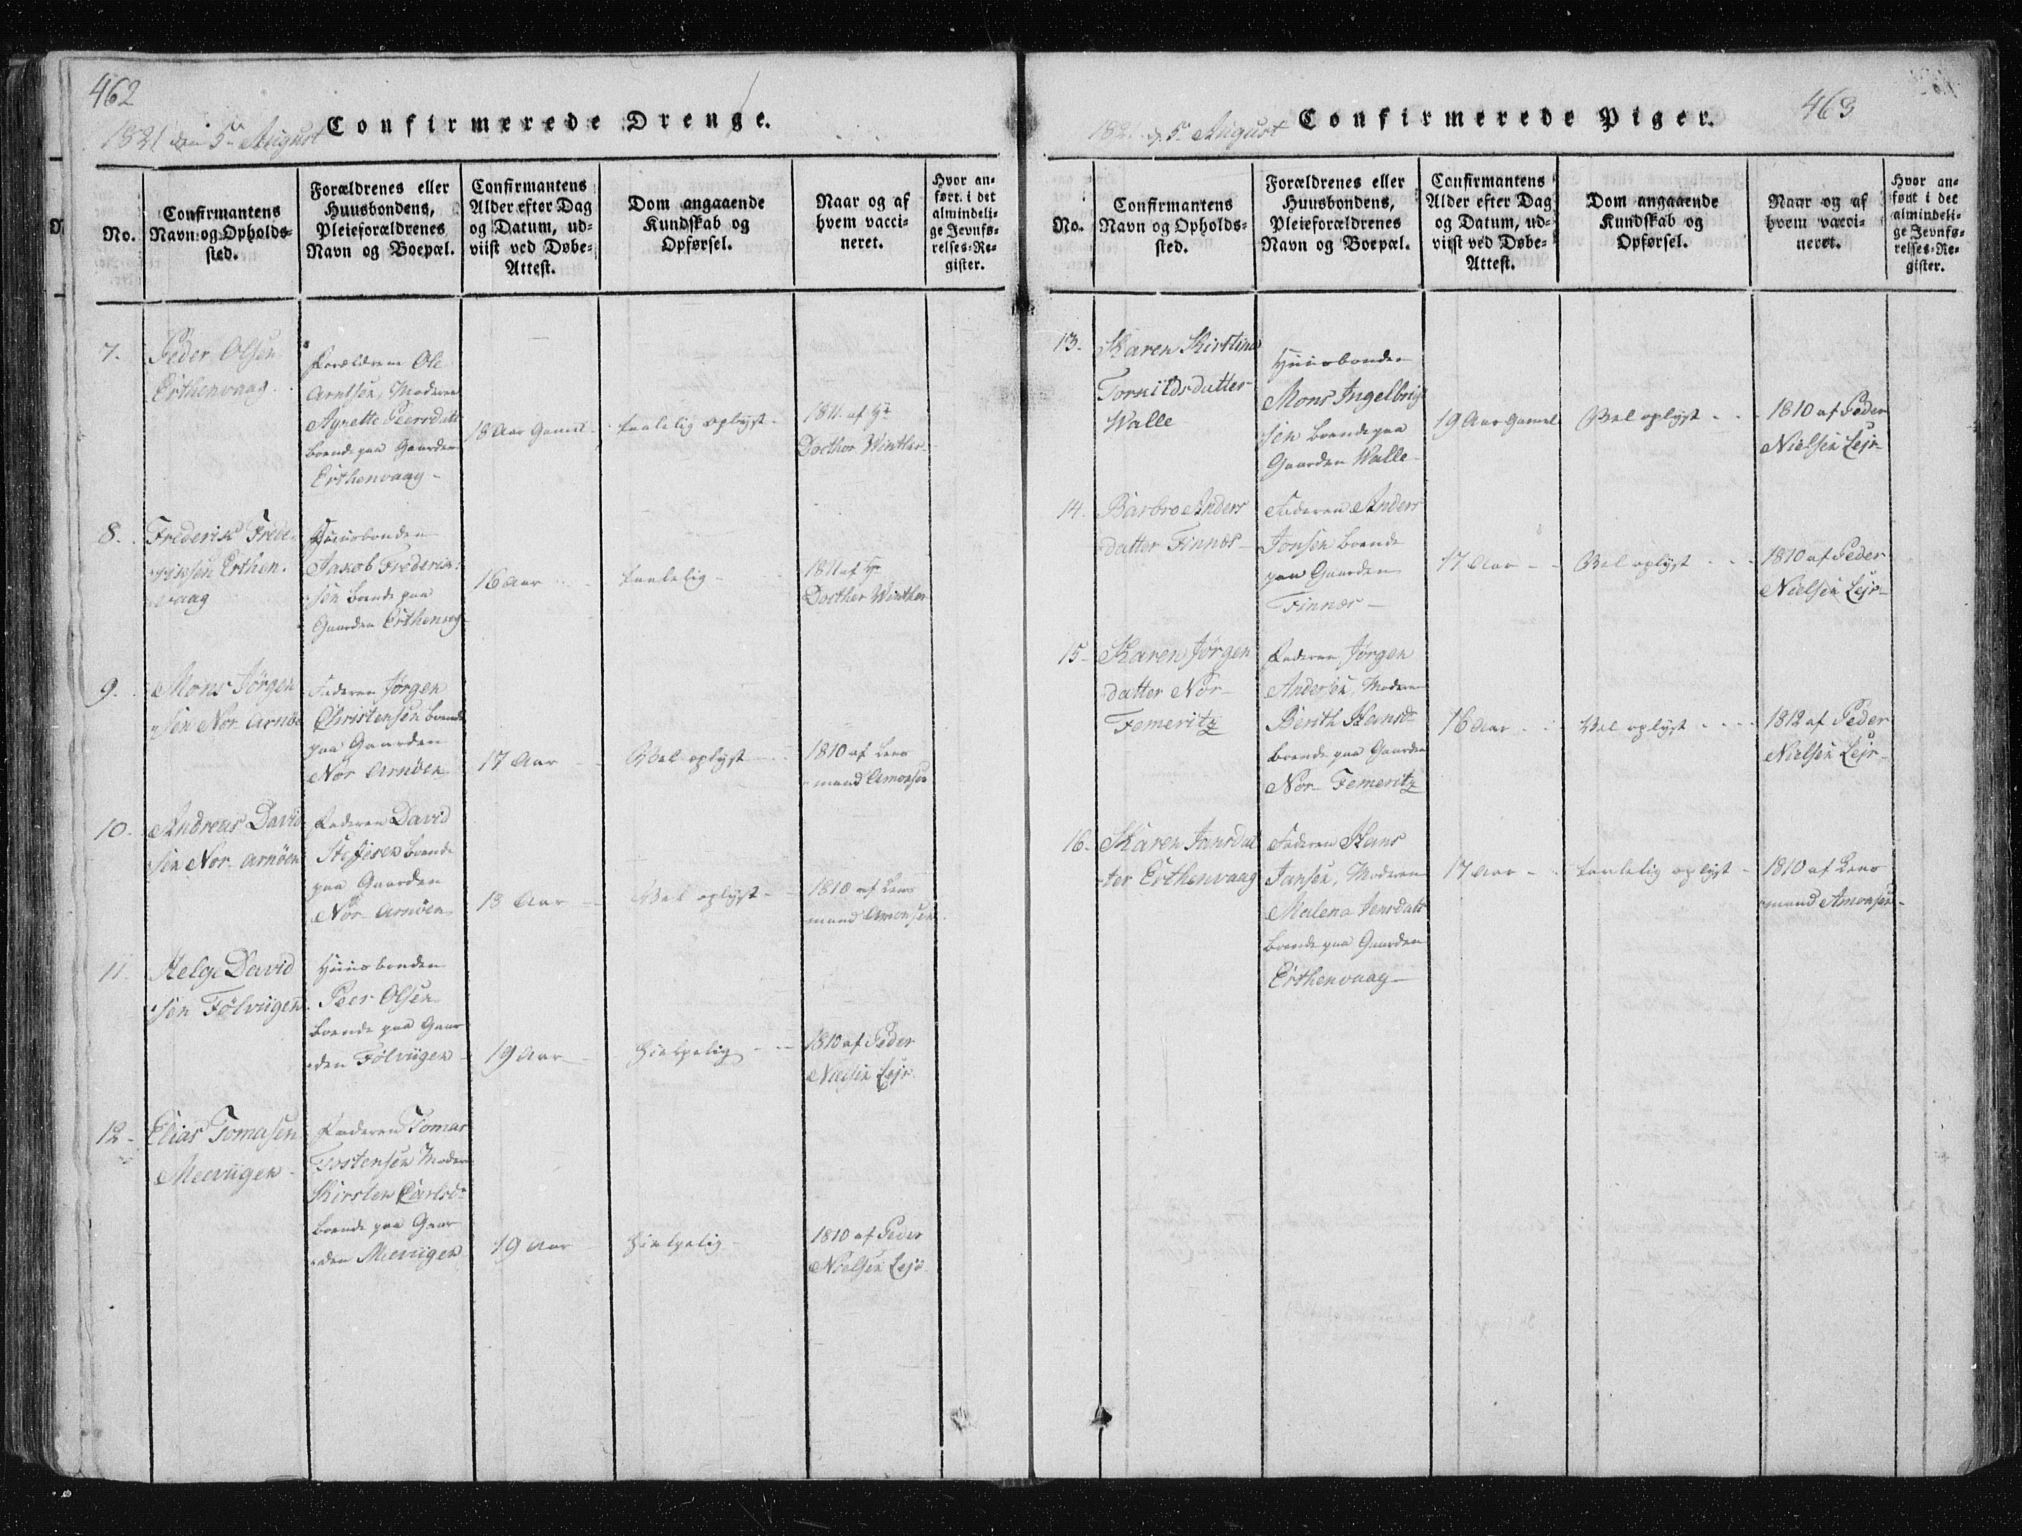 462
Confirmerede Drenge.
1821 den 5te August
No.
Confirmantens
Navn og Opholds-
sted.
Forældrenes eller
Huusbondens,
Pleieforældrenes
Navn og Boepæl.
Confirmantens
Alder efter Dag
og Datum, ud-
viist ved Døbe-
Attest.
Dom angaaende
Kundskab og
Opførsel.
Naar og af
hvem vacci-
neret.
Hvor an-
ført i det
almindeli-
ge Jevnfø-
relses-Re-
gister.
7.
Peder Olsen
Erthenvaag
Forældrene Ole
Arntsen, Moderen
Agnette Peersdatt
boende paa Gaarden
Erthenvaag
18 Aar Gamel
taalelig oplyst
1811. af Hr
Docthor Winther
8.
Frederik Frede-
riksen Erthen-
vaag
Huusbonden
Jakob Frederik-
sen boende paa
Gaarden Erthenvag
16 Aar
taalelig
1811 af Hr
Docther Winther
9.
Mons Jörgen
sen Nor Arnöe
Faderen Jörgen
Christensen boende
paa Gaarden
Nor Arnöen
17 Aar
Vel oplyst
1810 af Lens
mand Amonsen
10.
Andreas David
sen Nor Arnöen
Faderen David
boende
paa Gaarden
Nor Arnöen
18 Aar
Vel oplyst
1810 af Lens
mand Amonsen
11.
Helge David
sen Fölvügen
Huusbonden
Peer Olsen
boende paa Gaar
den Fölvügen
19 Aar
Hielpelig
1810 af Peder
Nielsen Lejr
12.
Elias Tomasen
Meevügen
Faderen Tomas
Tostensen Moder
Kirsten Carlsdr
boende paa Gaar
den Meevügen
19 Aar
Hielpelig
1810 af Peder
Nielsen Lejr
463
Confirmerede Piger.
182. d. 5. August
No.
Confirmantens
Navn og Opholds-
sted.
Forældrenes eller
Huusbondens,
Pleieforældrenes
Navn og Boepæl.
Confirmantens
Alder efter Dag
og Datum, ud-
viist ved Døbe-
Attest.
Dom angaaende
Kundskab og
Opførsel.
Naar og af
hvem vacci-
neret.
Hvor an-
ført i det
almindeli-
ge Jevnfø-
relses-Re-
gister.
13.
Karen Kirstina
Tornildsdatter
Walle
Huusbonden
Mons Ingelbrig
sen boende paa
Gaarden Walle
19 Aar Gamel
Vel oplyst
1810 af Peder
Nielsen Lejr
14.
Barbro Anders
datter Finnes
Faderen Anders
Jonsen boende
paa Gaarden
Finnes
17 Aar
Vel oplyst
1810 af Peder
Nielsen Lejr
15.
Karen Jörgen
datter Nor-
Femeritz
Faderen Jörgen
Andersen, Moderen
Berith Hansdr
boende paa Gaarden
Nor Femeritz
16 Aar
Vel oplyst
1812 af Peder
Nielsen Lejr
16.
Karen Jansdat
ter Erthenvaag
Faderen Hans
Jansen, Moderen
Malena Jensdatt
boende paa Gaarden
Erthenvaag
17 Aar
taalelig oplyst
1810 af Lens
mand Amonsen